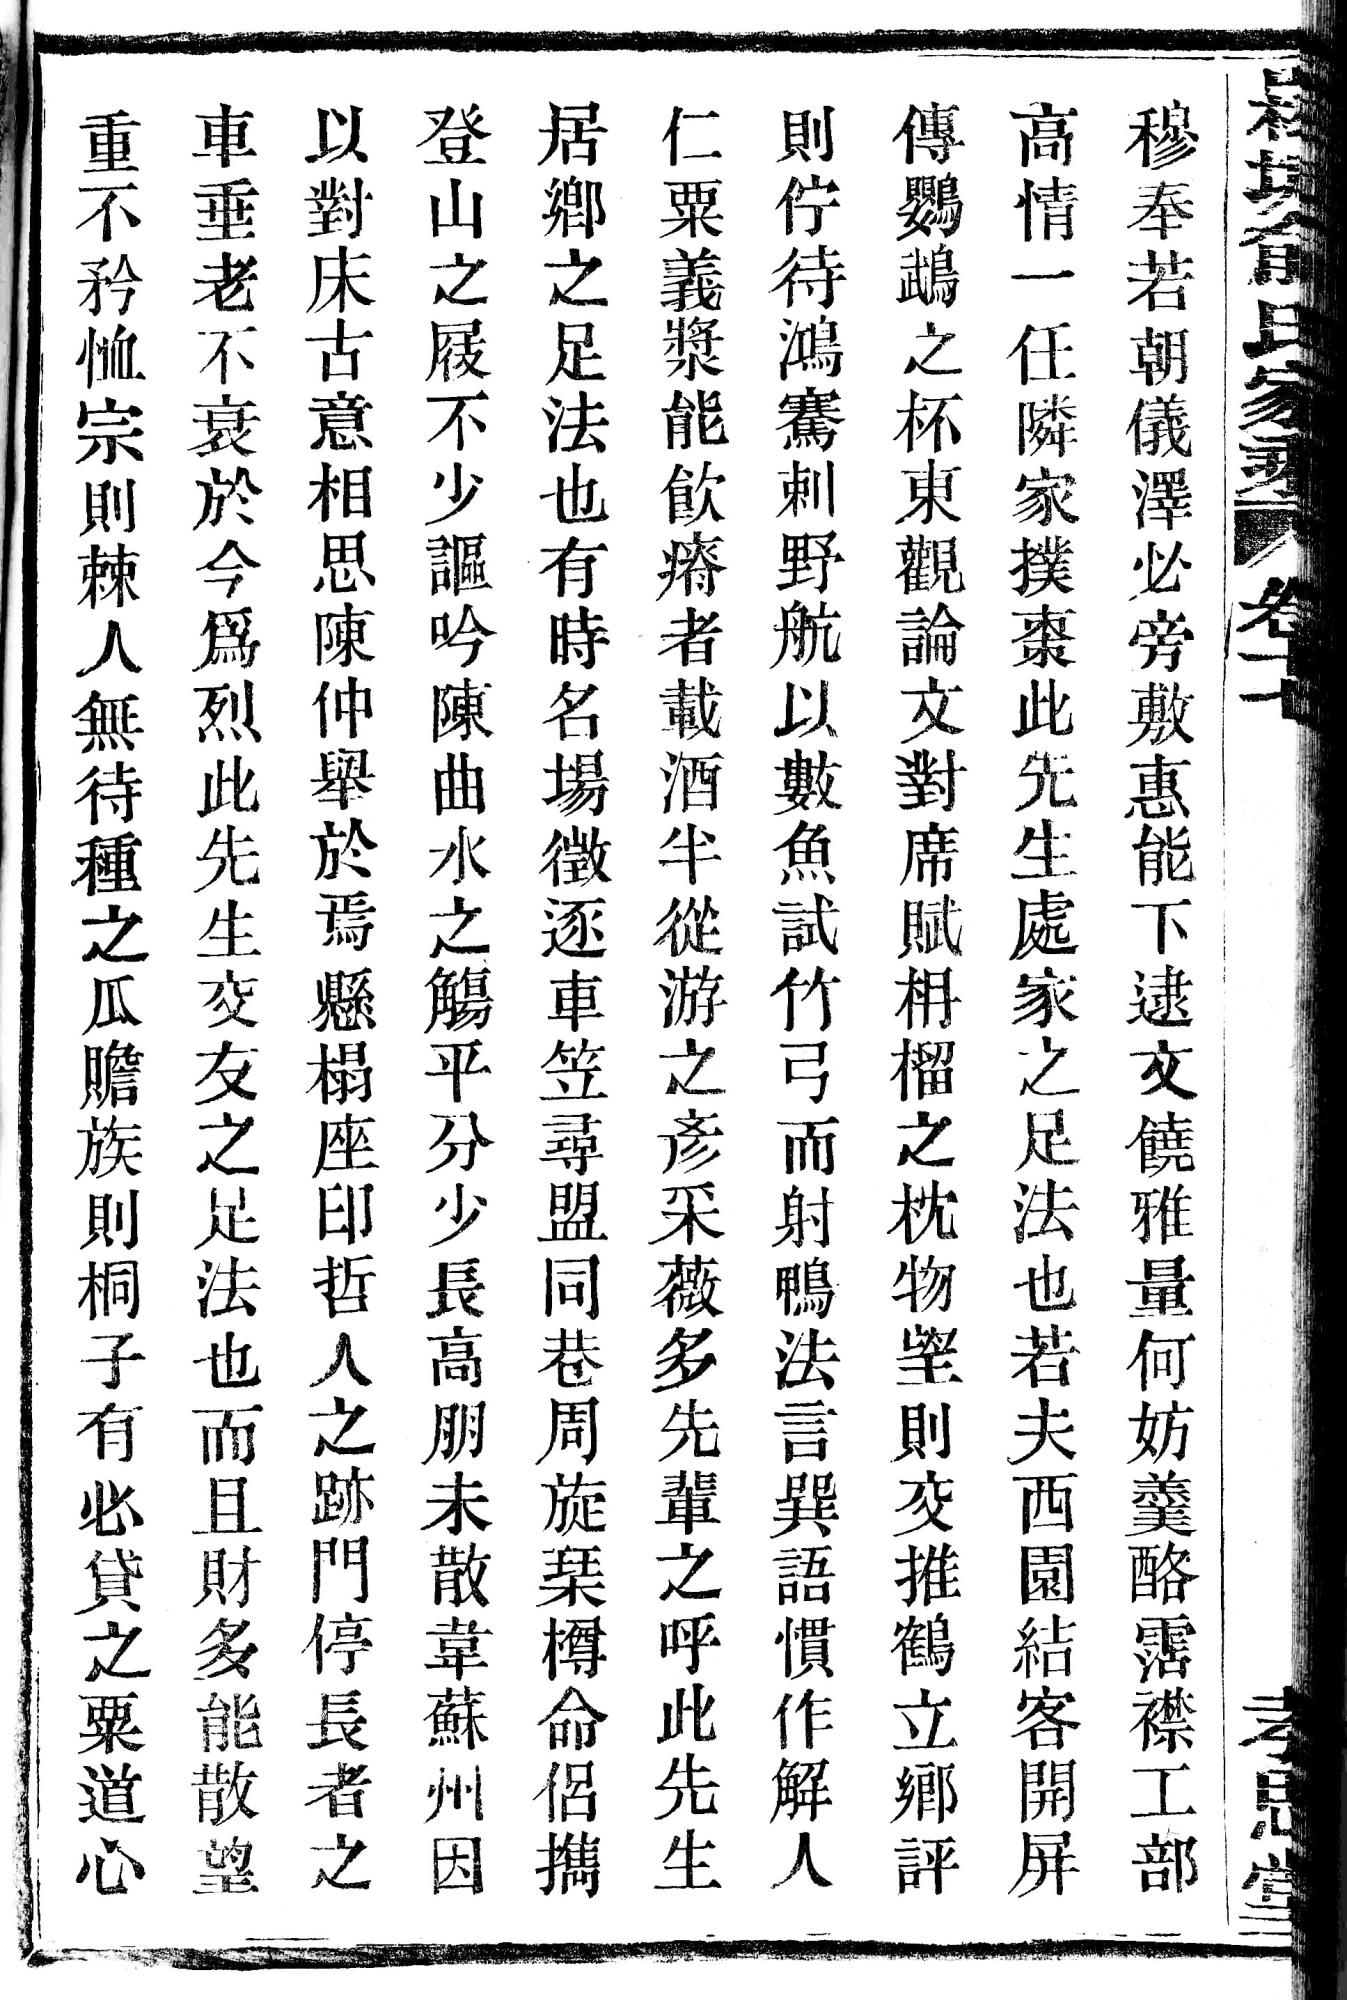 穆奉若朝儀澤必旁敷惠能下逮文饒雅量何妨羹酪霑襟工部
高情一任隣家撲棗此先生處家之足法也若夫西園結客開屏
傳鸚鵡之杯東觀論文對席賦枏榴之枕物望則交推鶴立鄉評
則佇待鴻騫刺野航以數魚試竹弓而射鴨法言巽語慣作解人
仁粟義漿能飲瘠者載酒半從游之彥采薇多先輩之呼此先生
居鄉之足法也有時名場徵逐車笠尋盟同巷周旋琹樽命侶擕
登山之屐不少謳吟陳曲水之觴平分少長高朋未散韋蘇州因
以對床古意相思陳仲舉於焉懸榻座印哲人之跡門停長者之
車垂老不衰於今爲烈此先生交友之足法也而且財多能散望
重不矜恤宗則棘人無待種之瓜贍族則桐子有必貸之粟道心
氏家乘 卷十七 孝思堂